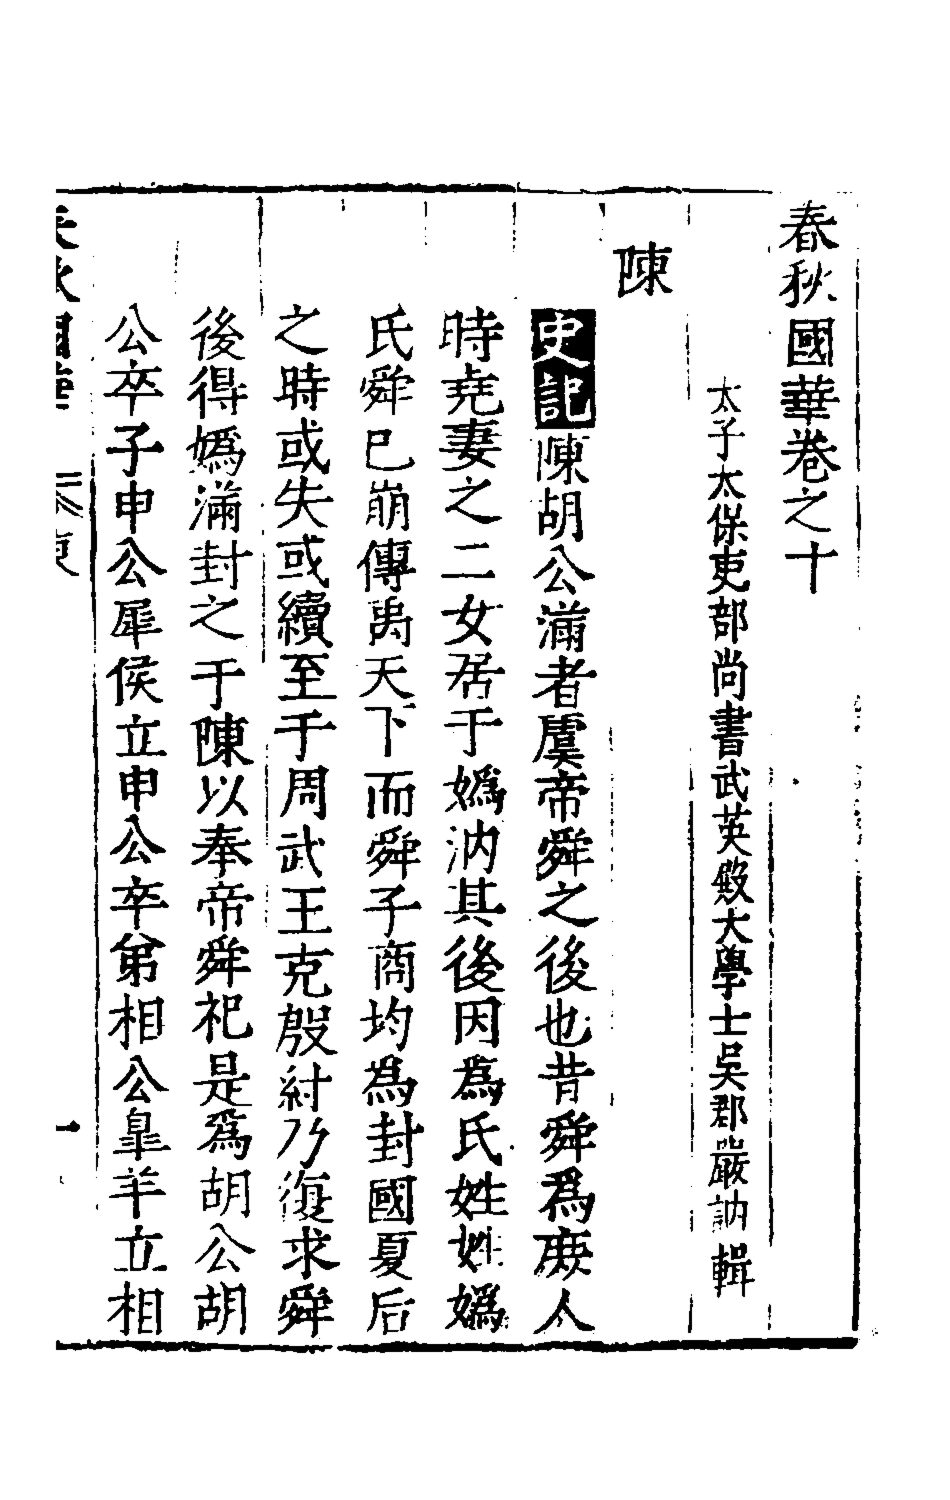 春秋國華卷之十
太子太保吏部尚書武英殿大學士吳郡嚴訥輯
陳
史記陳胡公滿者虞帝舜之後也昔舜爲庻人
時堯妻之二女居于嬀汭其後因爲氏姓姓嬀
氏舜已崩傳禹天下而舜子商均爲封國夏后
之時或失或續至于周武王克殷紂乃復求舜
後得嬀滿封之于陳以奉帝舜祀是爲胡公胡
公卒子申公犀侯立申公卒弟相公臯羊立相